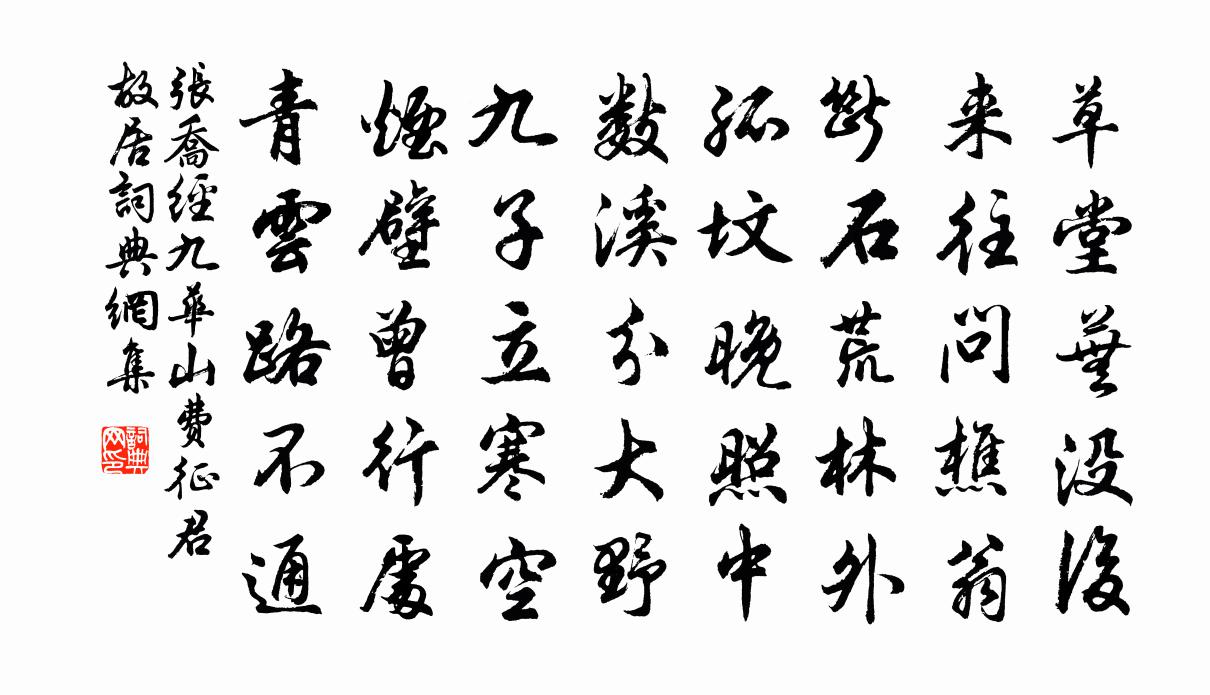 草堂蕪没後
来往問樵翁
斷石荒林外
孤坟晚照中
數溪分大野
九子立寒空
煙壁曾行處
青雲路不通
張喬經九華山費征君
故居詞典網集
詞典
网印